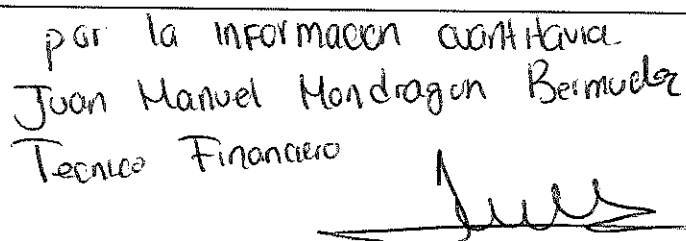 por la informacion cuantitavia
Juan Manuel Mondragon Bermudez
Tecnico Financiero